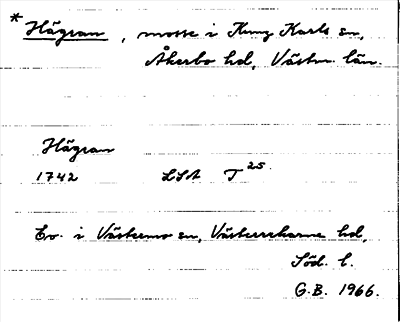 *Hägran, mosse i Kung Karls sn,
Åkerbo hd, Västm. län.
Hägran
1742 LSA T 25.
Ev. i Västermo sn, Västerrekarne hd,
Söd. l.
G.B. 1966.